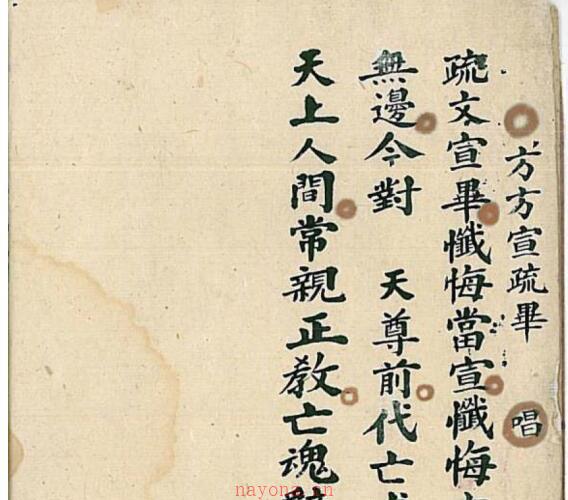 方方宣疏畢 唱
疏文宣畢懺悔當宣懺悔
無邊今對 天尊前代亡
天上人間常親正教亡魂
nayona.cn